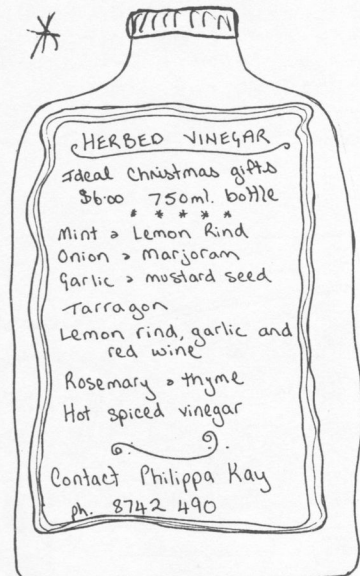 HERBED VINEGAR
Ideal Christmas gifts
$6.00 750ml. bottle
* * * * *
Mint & Lemon Rind
Onion & Marjoram
Garlic & mustard seed
Tarragon
Lemon rind, garlic and
red wine
Rosemary & thyme
Hot spiced vinegar
Contact Philippa Kay
ph. 8742 490